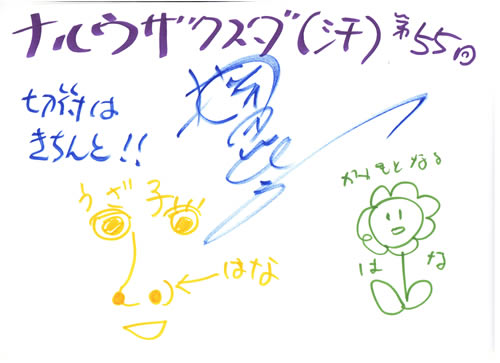 ナルウザクスダ(汗)第55回
切符は
きちんと!!
うざ子
←はな
かんもとなる
はな